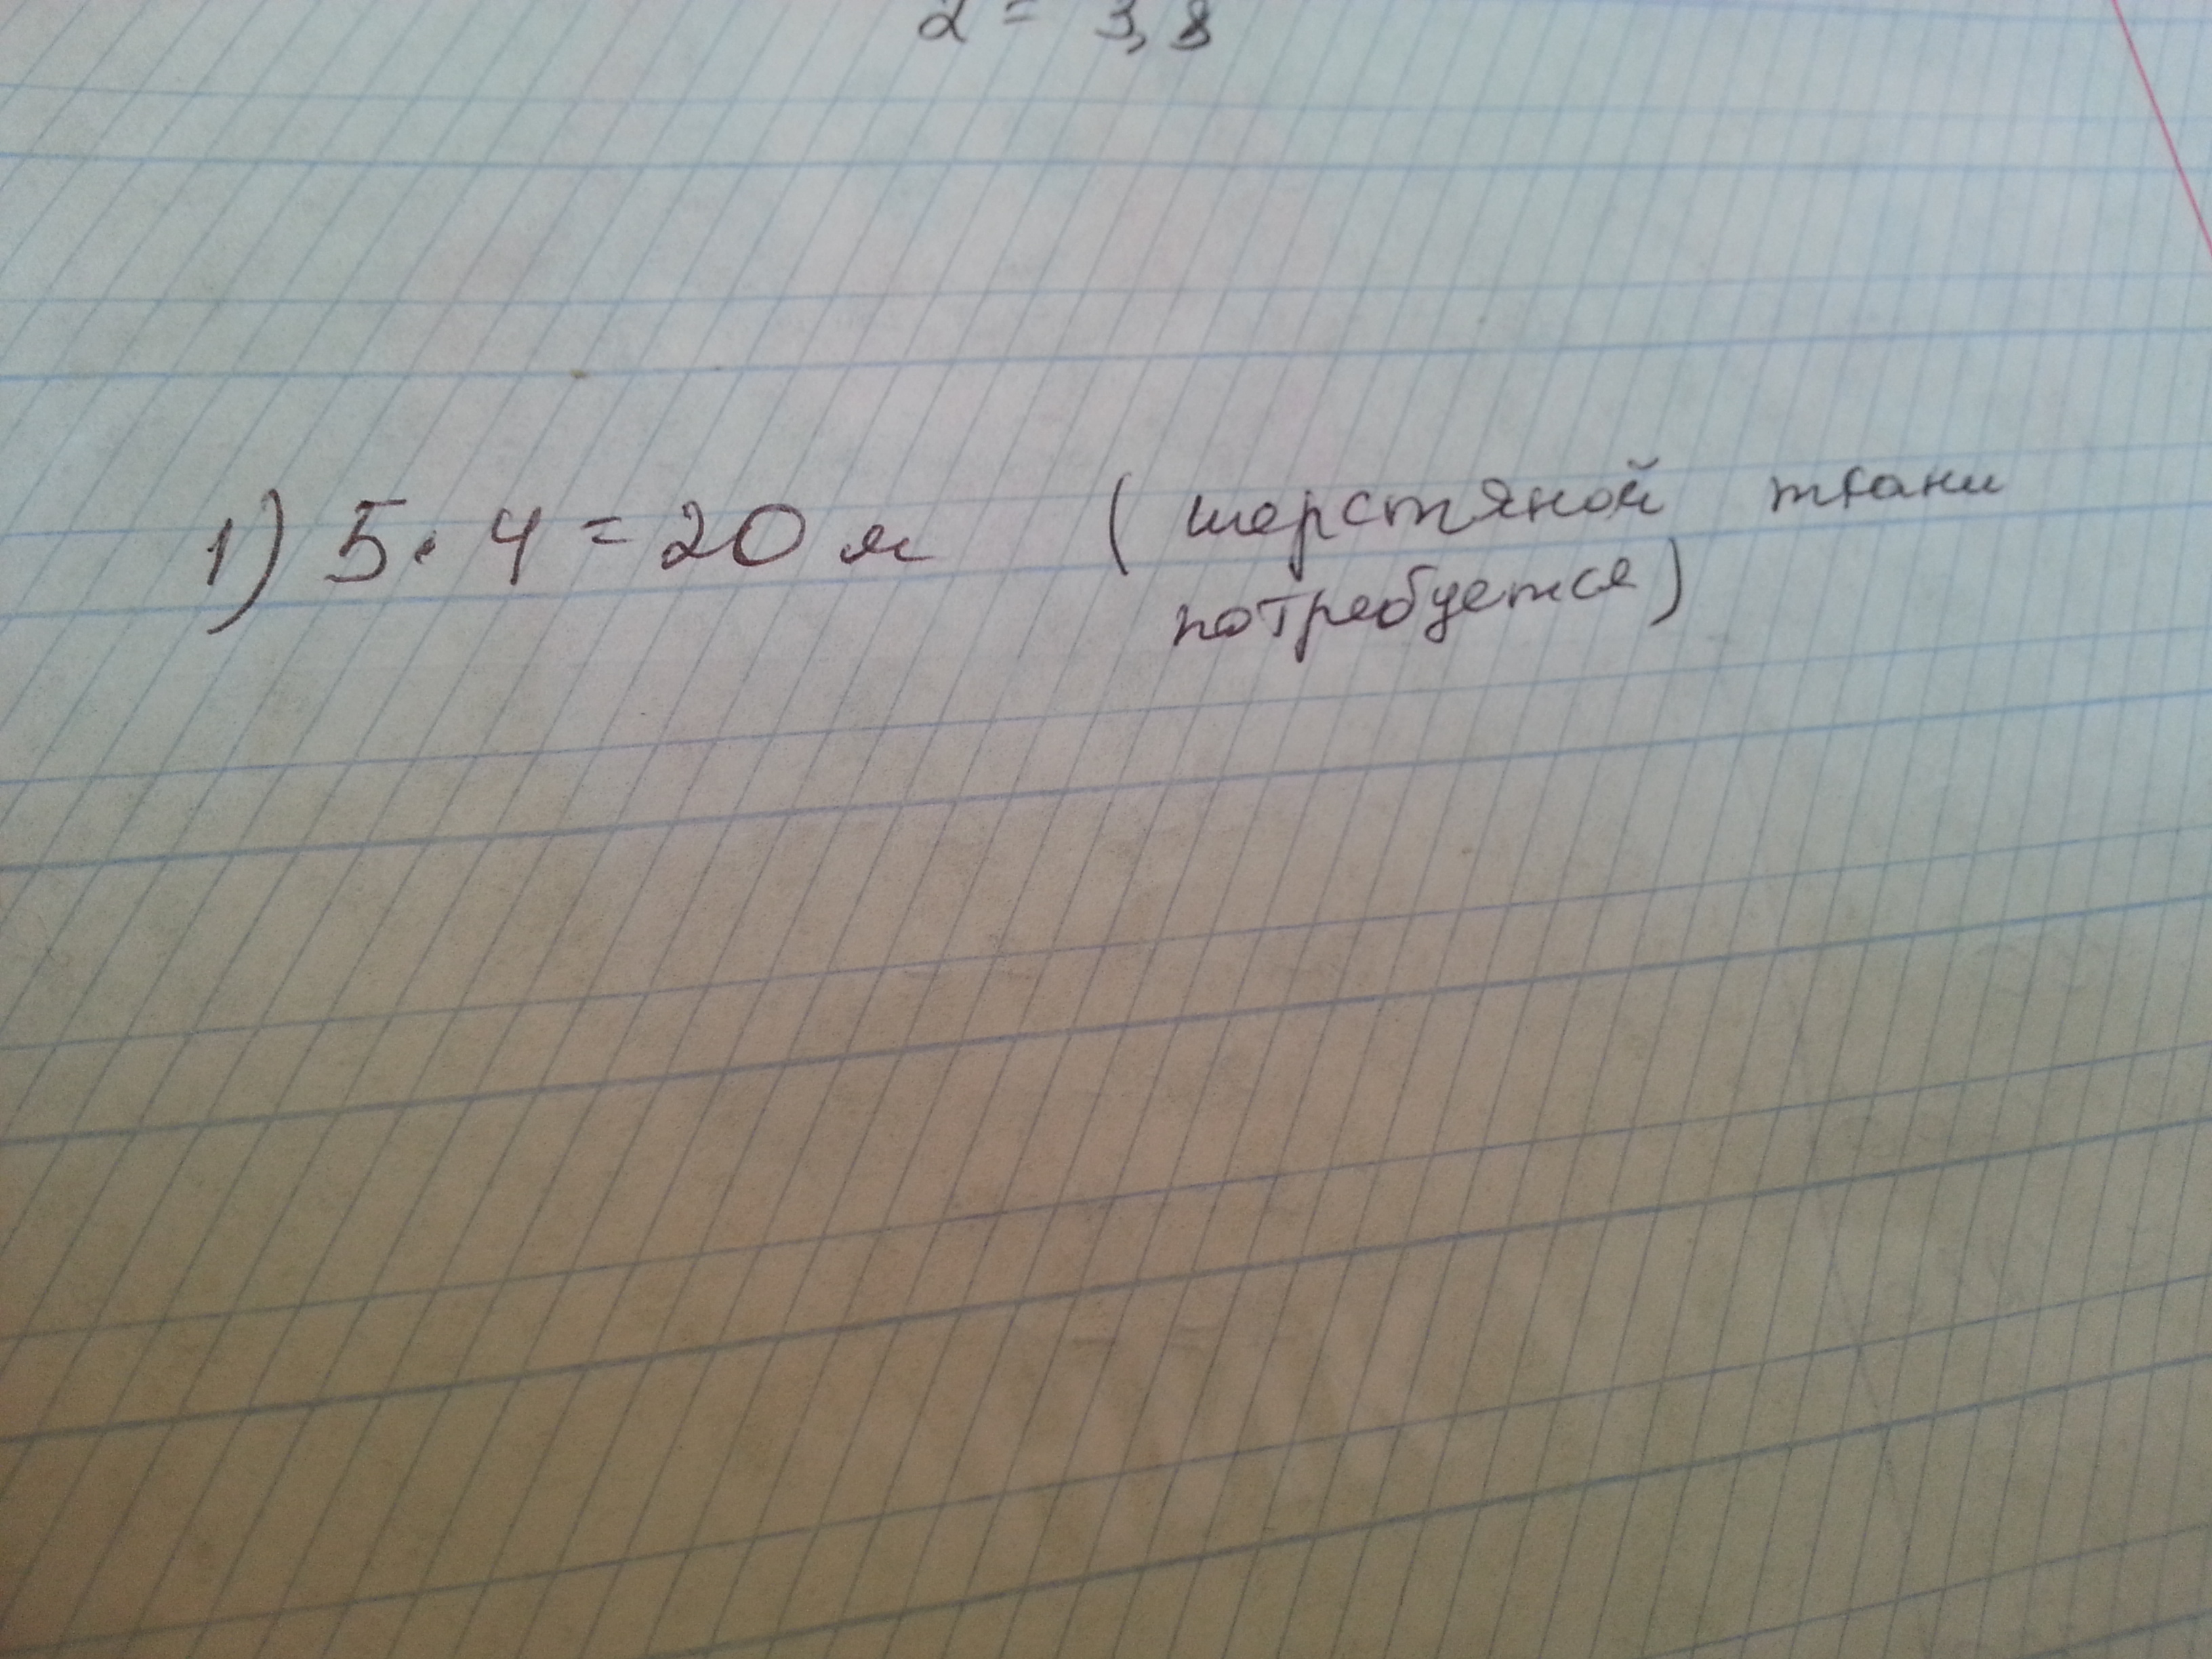 2 = 3,8
1) 5 · 4 = 20 м (шерстяной ткани
потребуется)